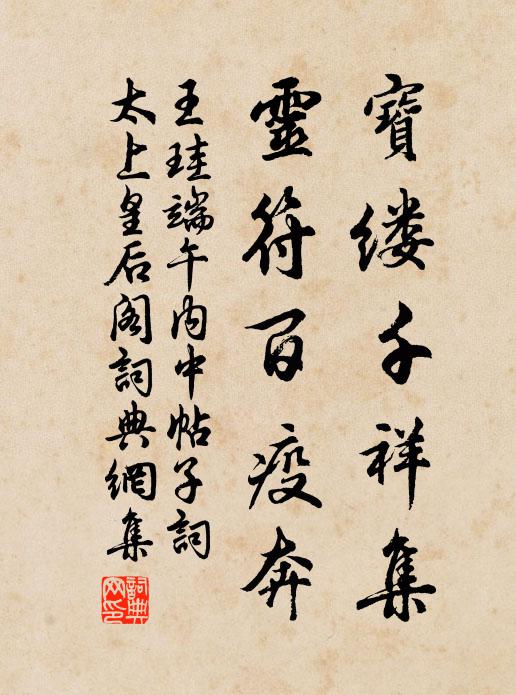 寶縷千祥集
靈符百疫奔
王珪端午内中帖子詞
太上皇后阁詞典網集
詞典网印